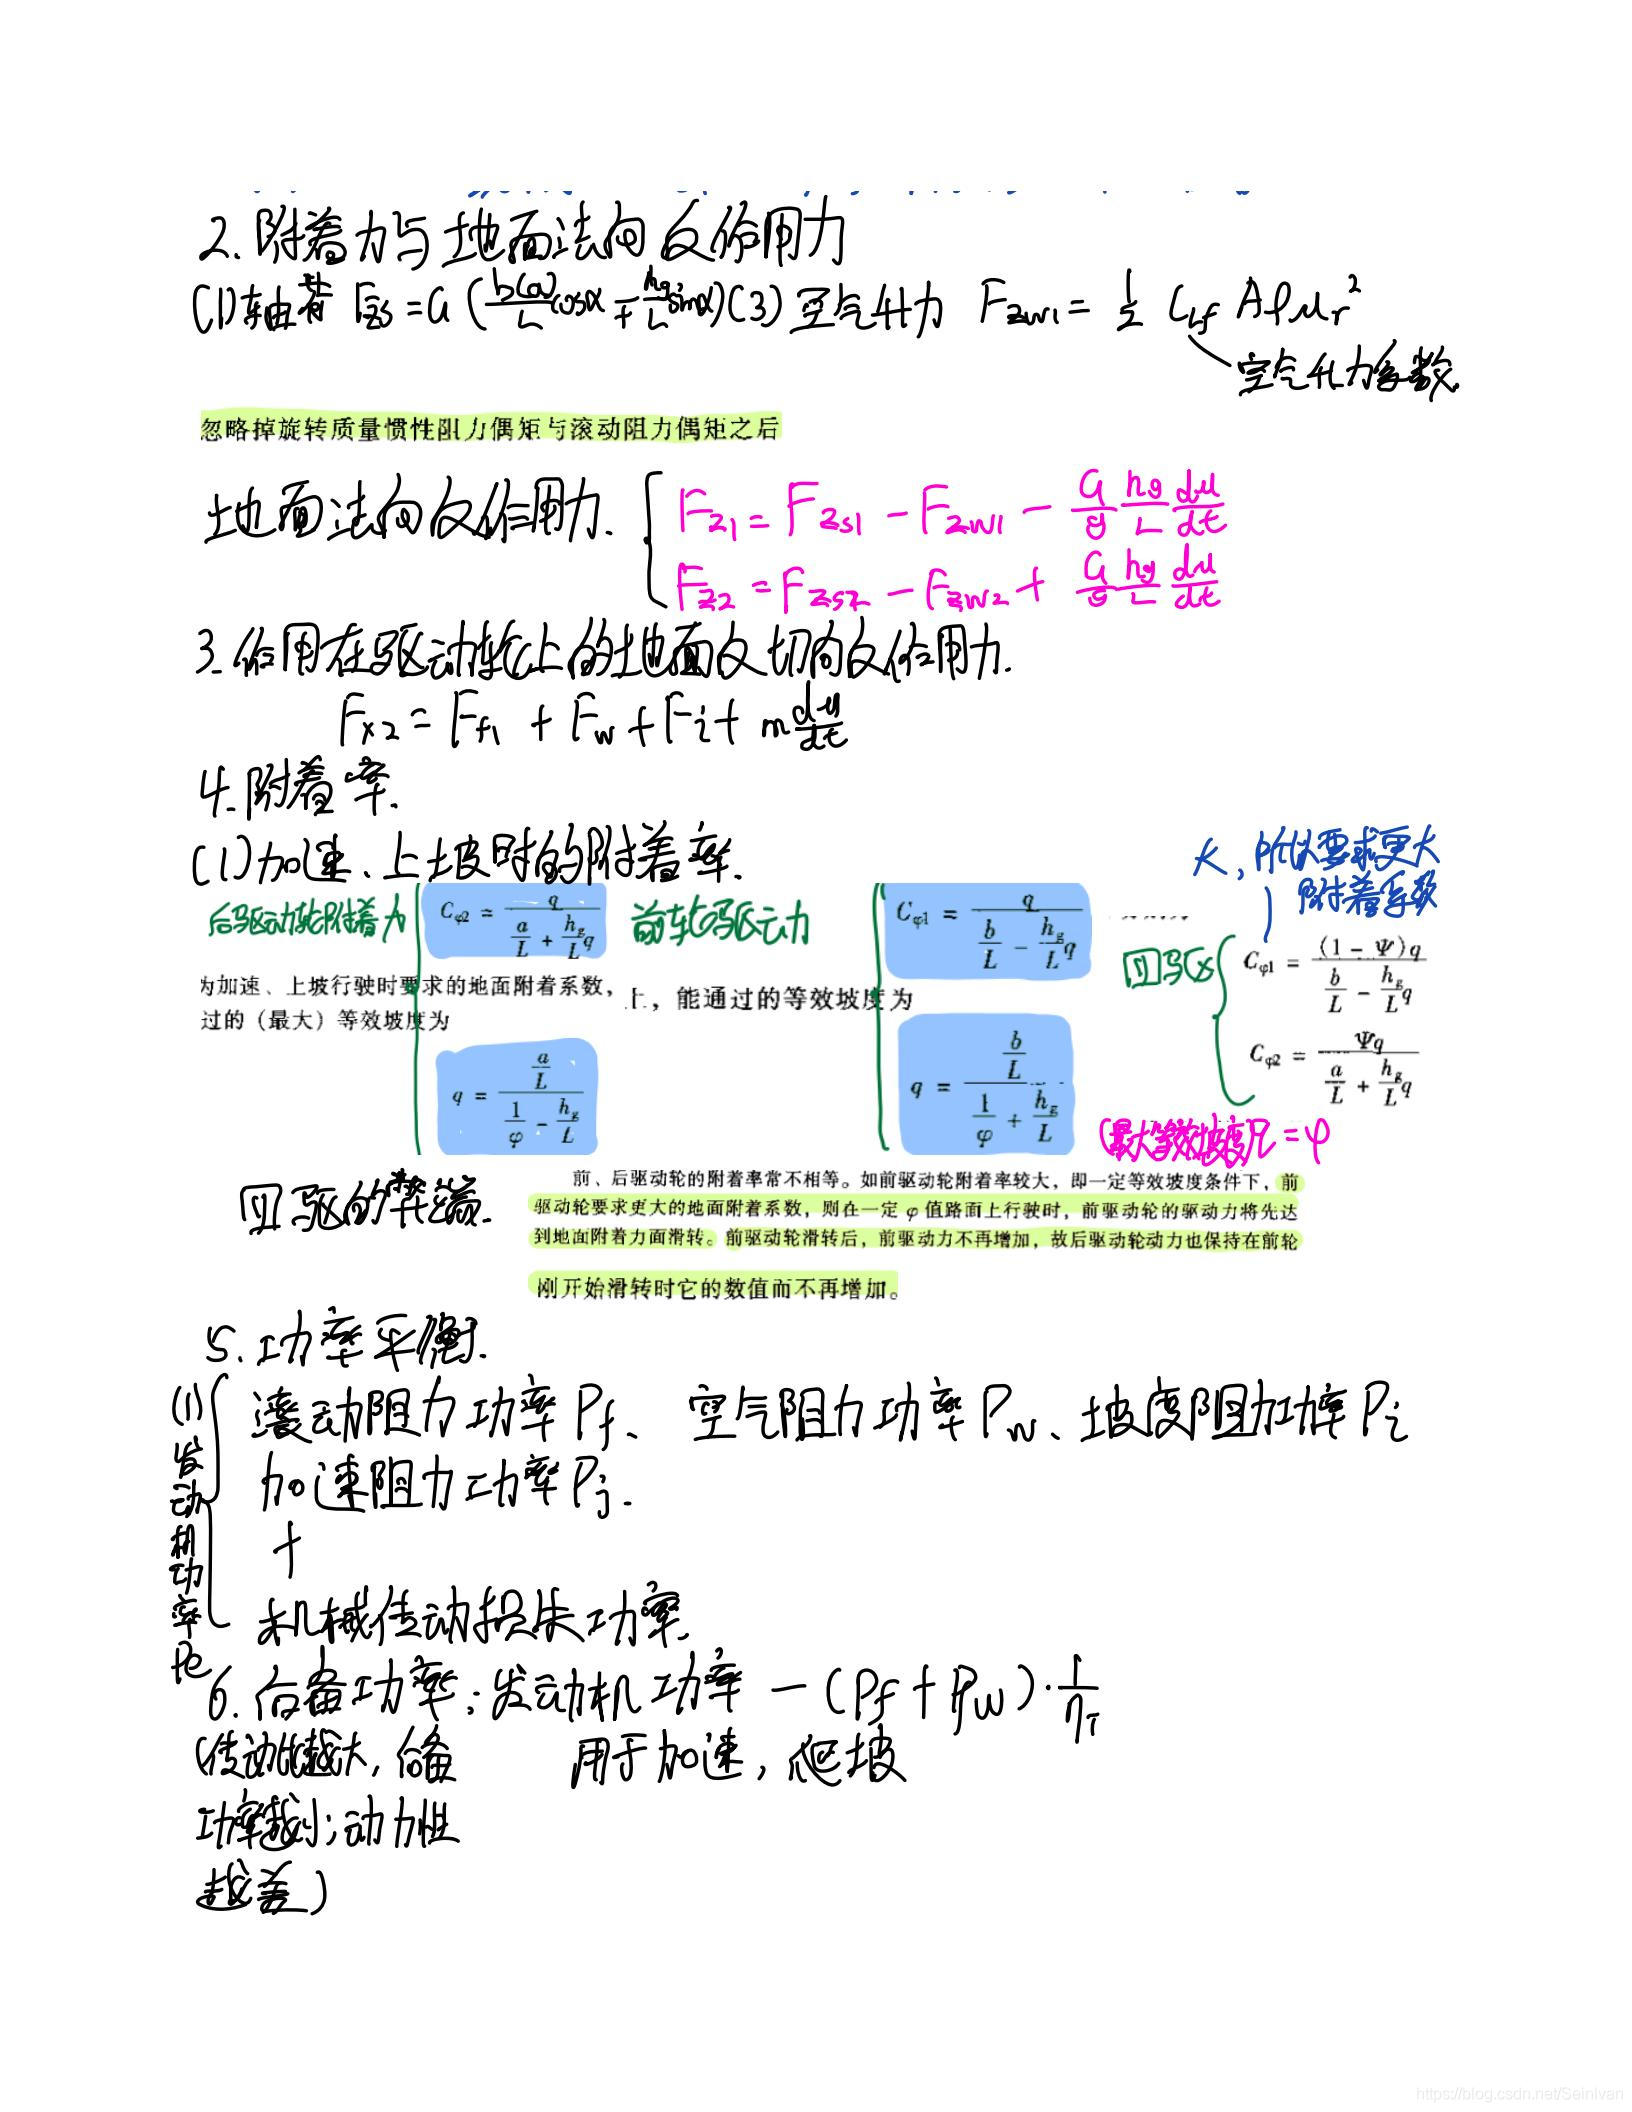 2. 附着力与地面法向反作用力
(1) 轴荷 Fzs = G (b(a)/L cosα ∓ hg/L sinα) (3) 空气升力 Fzw1 = 1/2 CLf Aρur²
空气升力系数
忽略掉旋转质量惯性阻力偶矩与滚动阻力偶矩之后
地面法向反作用力. { Fz1 = Fzs1 - Fzw1 - G/g hg/L du/dt
Fz2 = Fzs2 - Fzw2 + G/g hg/L du/dt
3. 作用在驱动轮上的地面反切向反作用力.
Fx2 = Ff1 + Fw + Fi + m du/dt
4. 附着率.
(1) 加速、上坡时的附着率.
大, 所以要求更大
附着系数
后驱动轮附着力 Cφ2 = q / (a/L + hg/L q)
前轮驱动力 Cφ1 = q / (b/L - hg/L q)
四驱 { Cφ1 = (1 - Ψ)q / (b/L - hg/L q)
Cφ2 = Ψq / (a/L + hg/L q)
为加速、上坡行驶时要求的地面附着系数,
过的（最大）等效坡度为
上，能通过的等效坡度为
q = (a/L) / (1/φ - hg/L)
q = (b/L) / (1/φ + hg/L)
(最大等效坡度尺 = φ
四驱的弊端.
前、后驱动轮的附着率常不相等。如前驱动轮附着率较大，即一定等效坡度条件下，前
驱动轮要求更大的地面附着系数，则在一定 φ 值路面上行驶时，前驱动轮的驱动力将先达
到地面附着力而滑转。前驱动轮滑转后，前驱动力不再增加，故后驱动轮动力也保持在前轮
刚开始滑转时它的数值而不再增加。
5. 功率平衡.
(1) 发动机功率Pe
滚动阻力功率 Pf、 空气阻力功率 Pw、坡度阻力功率 Pi
加速阻力功率 Pj.
+
机械传动损失功率.
6. 后备功率: 发动机功率 - (Pf + Pw)·1/ηT
(传动比越大, 后备
用于加速, 爬坡
功率越小; 动力性
越差)
https://blog.csdn.net/SeinIvan